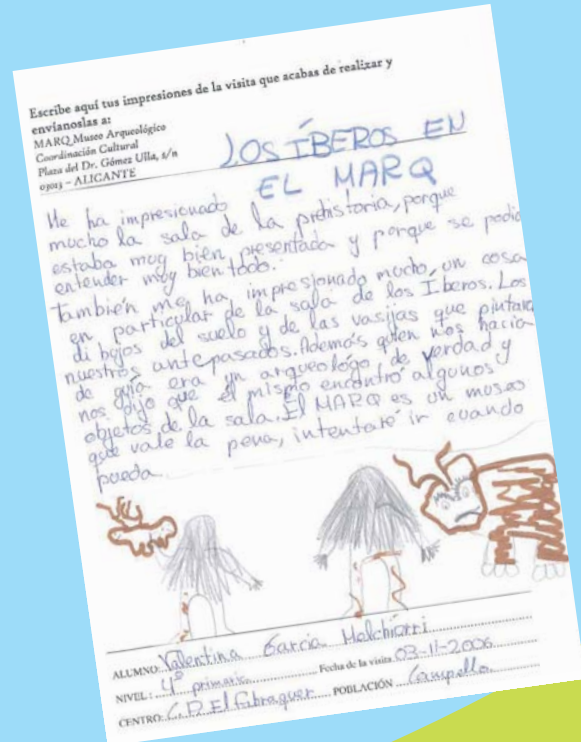 Escribe aquí tus impresiones de la visita que acabas de realizar y
envíanoslas a:
MARQ Museo Arqueológico
Coordinación Cultural
Plaza del Dr. Gómez Ulla, s/n
03013 – ALICANTE
LOS ÍBEROS EN
EL MARQ
Me ha impresionado
mucho la sala de la prehistoria, porque
estaba muy bien presentada y porque se podia
entender muy bien todo.
También me ha impresionado mucho, un cosa
en particular de la sala de los Íberos. Los
dibujos del suelo y de las vasijas que pintaro
nuestros antepasados. Además quien nos hacía
de guía era un arqueológo de verdad y
nos dijo que el mismo encontró algunos
objetos de la sala. El MARQ es un museo
que vale la pena, intentaré ir cuando
pueda.
ALUMNO: Valentina Garcia Melchiorri
NIVEL: 4º primaria Fecha de la visita 03-11-2006
CENTRO: C.P. El Fabraquer POBLACIÓN Campello